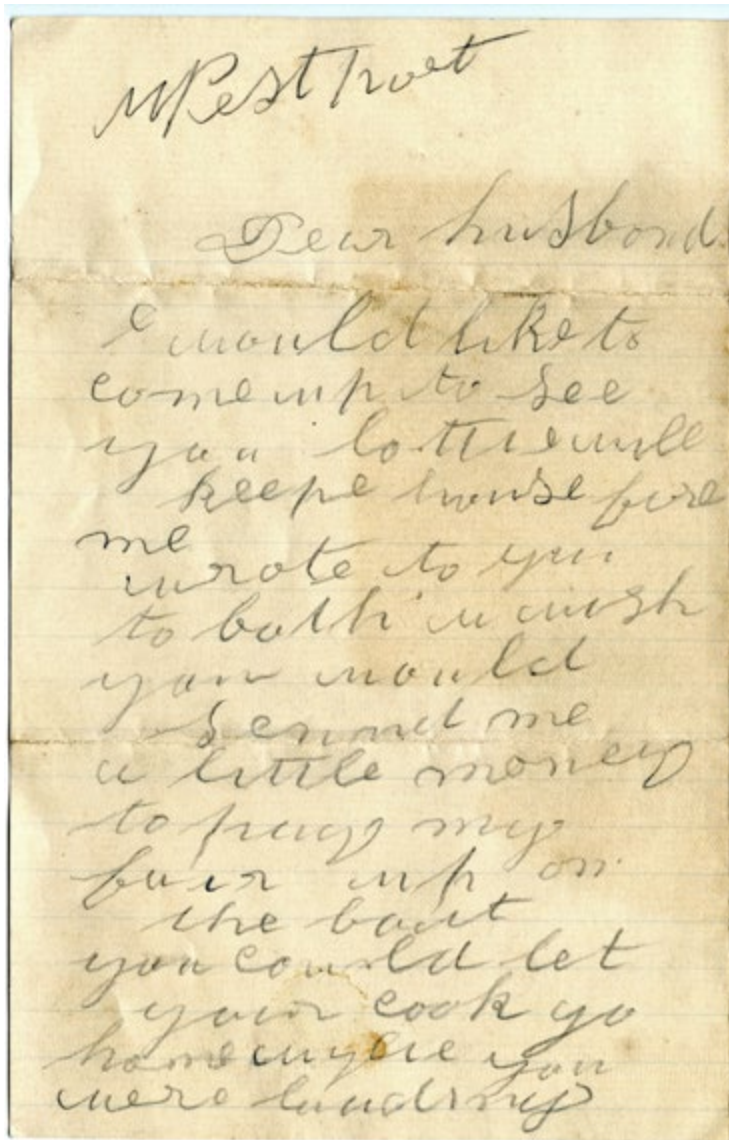 West Port
Dear husbond
I would like to
come up to see
you lottie will
keepe house fore
me
wrote to you
to bath i wish
you would
sennd me
a little money
to pay my
fair up on
the boat
you could let
your cook go
home you
were loading